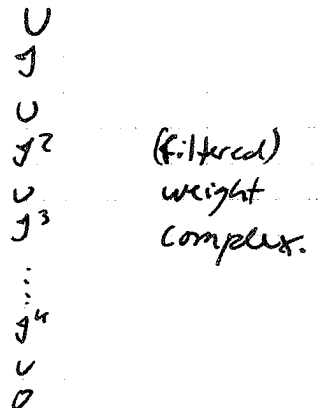 ∪
J
∪
J²
∪
J³
⋮
J⁴
∪
0
(filtered)
weight
complex.